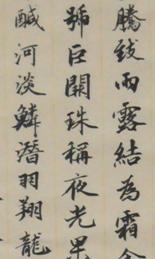 騰致雨露結為霜金
號巨闕珠稱夜光果
鹹河淡鱗潛羽翔龍